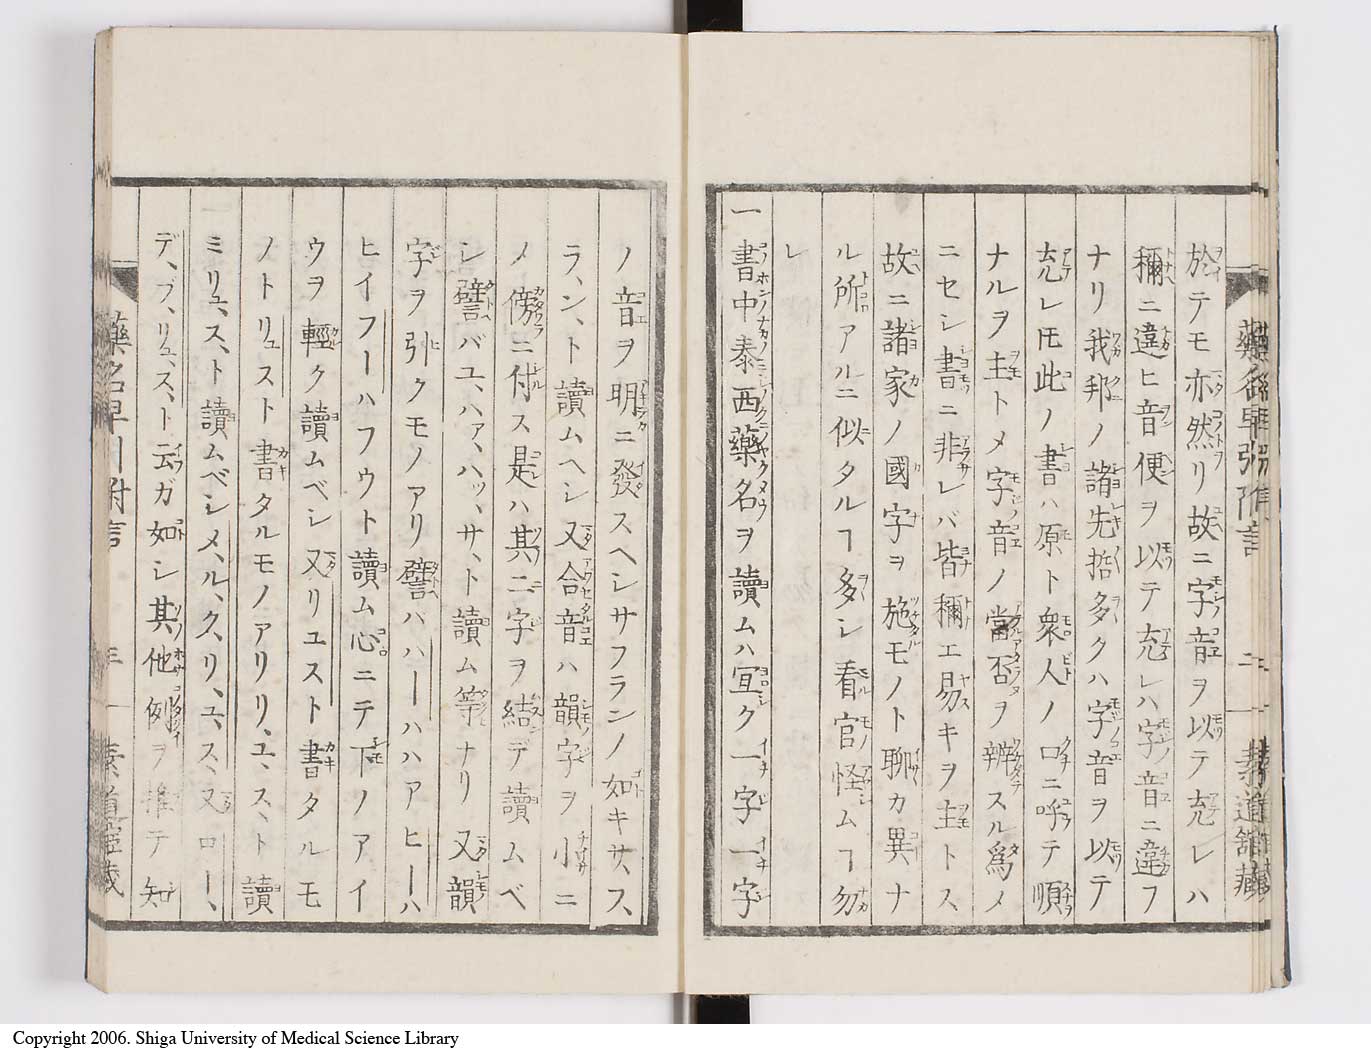 於テモ亦然リ故ニ字音ヲ以テ充レハ
稱ニ違ヒ音便ヲ以テ充レハ字音ニ違フ
ナリ我邦ノ諸先哲多クハ字音ヲ以テ
充レ𪜈此ノ書ハ原ト衆人ノ口ニ呼テ順
ナルヲ主トメ字音ノ當否ヲ辨スル爲メ
ニセシ書ニ非レバ皆稱エ易キヲ主トス
故ニ諸家ノ國字ヲ施モノト聊カ異ナ
ル所アルニ似タルヿ多シ看官怪ムヿ勿
レ
一書中泰西藥名ヲ讀ムハ宜ク一字一字
ノ音ヲ明ニ發スヘシサフランノ如キサ、ス、
ラ、ン、ト讀ムヘシ又合音ハ韻字ヲ小ニ
メ傍ニ付ス是ハ其二字ヲ結デ讀ムベ
シ譬バユ、ハァ、ハッ、サ、ト讀ム等ナリ又韻
字ヲ引クモノアリ譬ハハーハハアヒーハ
ヒイフーハフウト讀ム心ニテ下ノアイ
ウヲ輕ク讀ムベシ又リユスト書タルモ
ノトリュスト書タルモノアリリ、ユ、ス、ト讀
ミリュ、ス、ト讀ムベシメ、ル、ク、リ、ユ、ス、又ロー、
デ、ブ、リュ、ス、ト云ガ如シ其他例ヲ推テ知
藥名早引附言
二
藥名早引附言
Copyright 2006. Shiga University of Medical Science Library